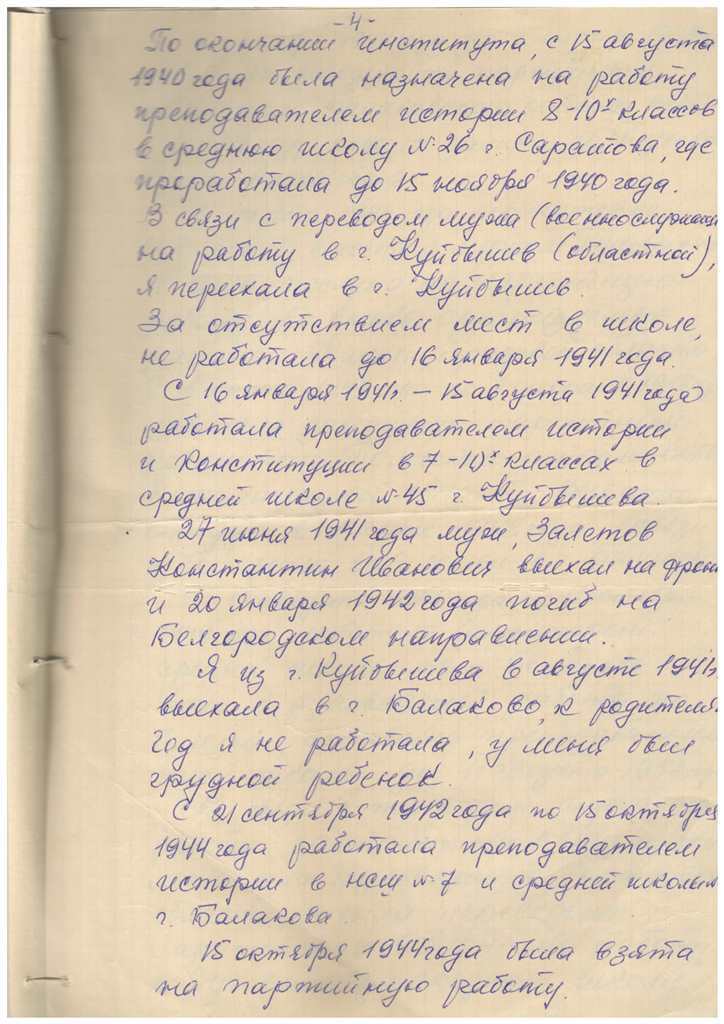 -4-
По окончании института, с 15 августа
1940 года была назначена на работу
преподавателем истории 8-10х классов
в среднюю школу №26 г. Саратова, где
проработала до 15 ноября 1940 года.
В связи с переводом мужа (военнослужащ
на работу в г. Куйбышев (областной),
я переехала в г. Куйбышев.
За отсутствием мест в школе,
не работала до 16 января 1941 года.
С 16 января 1941г. – 15 августа 1941 года
работала преподавателем истории
и Конституции в 7-10х классах в
средней школе №45 г. Куйбышева.
27 июня 1941 года муж, Залетов
Константин Иванович выехал на фрон
и 20 января 1942 года погиб на
Белгородском направлении.
Я из г. Куйбышева в августе 1941г
выехала в г. Балаково, к родителя
Год я не работала, у меня был
грудной ребенок.
С 21 сентября 1942 года по 15 октября
1944 года работала преподавателем
истории в нсш №7 и средней школы
г. Балакова
15 октября 1944 года была взята
на партийную работу.